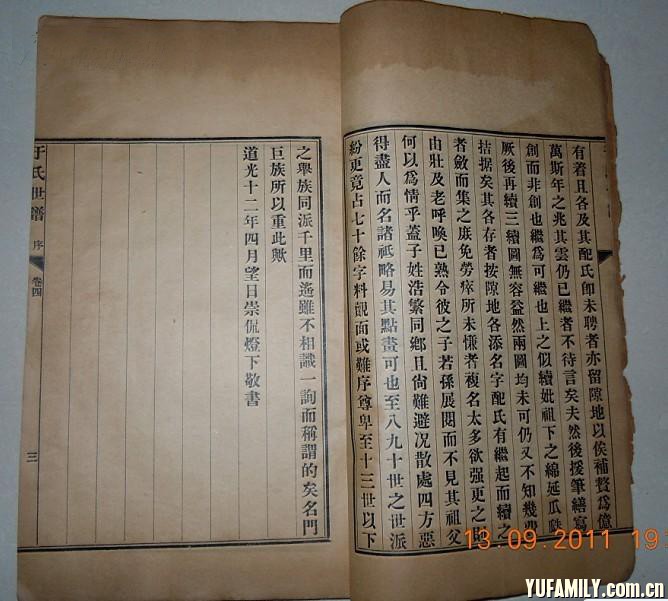 有着且各及其配氏卽未聘者亦留隙地以俟補贅為億
萬斯年之兆其雲仍已繼者不待言矣夫然後援筆繕寫
創而非創也繼為可繼也上之似續妣祖下之綿延瓜瓞
厥後再續三續圖無容益然兩圖均未可仍又不知幾費
拮据矣其各存者按隙地各添名字配氏有繼起而續之
者斂而集之庶免勞瘁所未慊者複名太多欲强更之
由壯及老呼喚已熟令彼之子若孫展閱而不見其祖父
何以為情乎蓋子姓浩繁同鄉且尙難避况散處四方惡
得盡人而名諸祇略易其點畫可也至八九十世之世派
紛更竟占七十餘字料覿面或難序尊卑至十三世以下
之舉族同派千里而遙雖不相識一詢而稱謂的矣名門
巨族所以重此歟
道光十二年四月望日崇侃燈下敬書
于氏世譜 序 卷四 三
13.09.2011 19:
YUFAMILY.com.cn